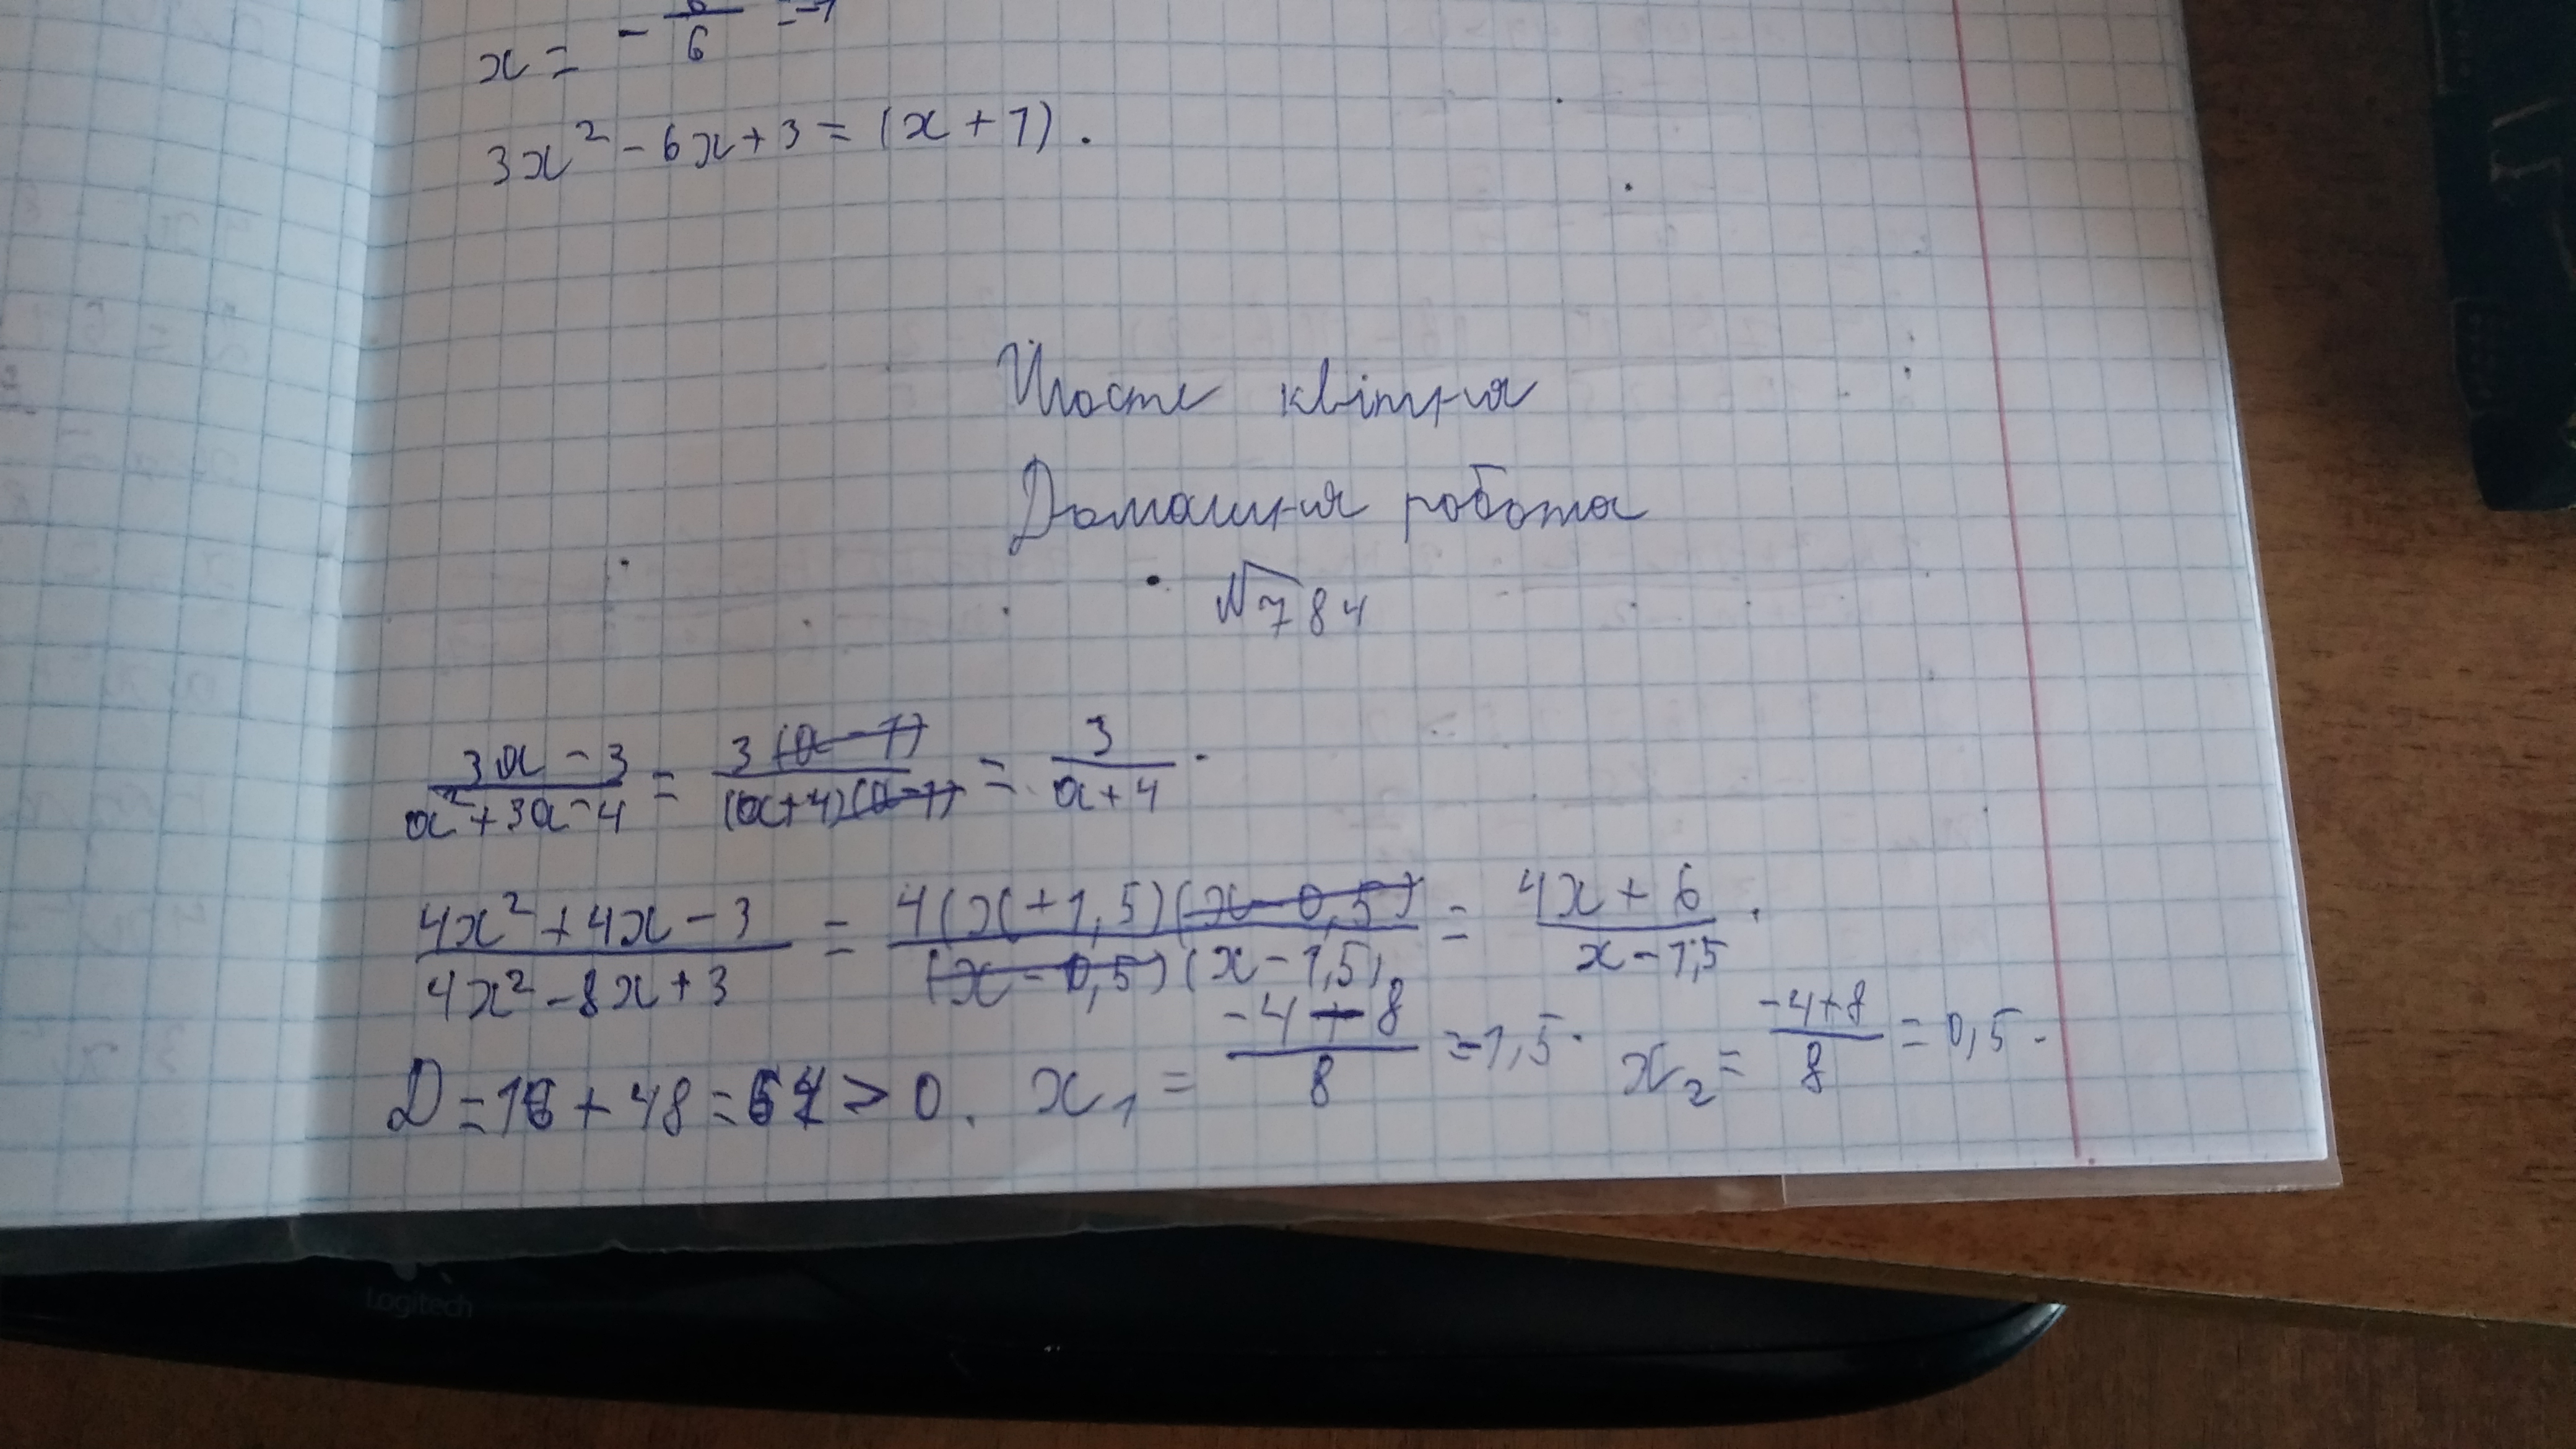 x = - 6/6 = -1
3x² - 6x + 3 = (x + 1).
Шосте квітня
Домашня робота
№784
(3a - 3)/(a² + 3a - 4) = (3(a - 1))/((a + 4)(a - 1)) = 3/(a + 4).
(4x² + 4x - 3)/(4x² - 8x + 3) = (4(x + 1,5)(x - 0,5))/((x - 0,5)(x - 1,5)) = (4x + 6)/(x - 1,5).
D = 16 + 48 = 64 > 0. x₁ = (-4 - 8)/8 = -1,5. x₂ = (-4 + 8)/8 = 0,5.
Logitech